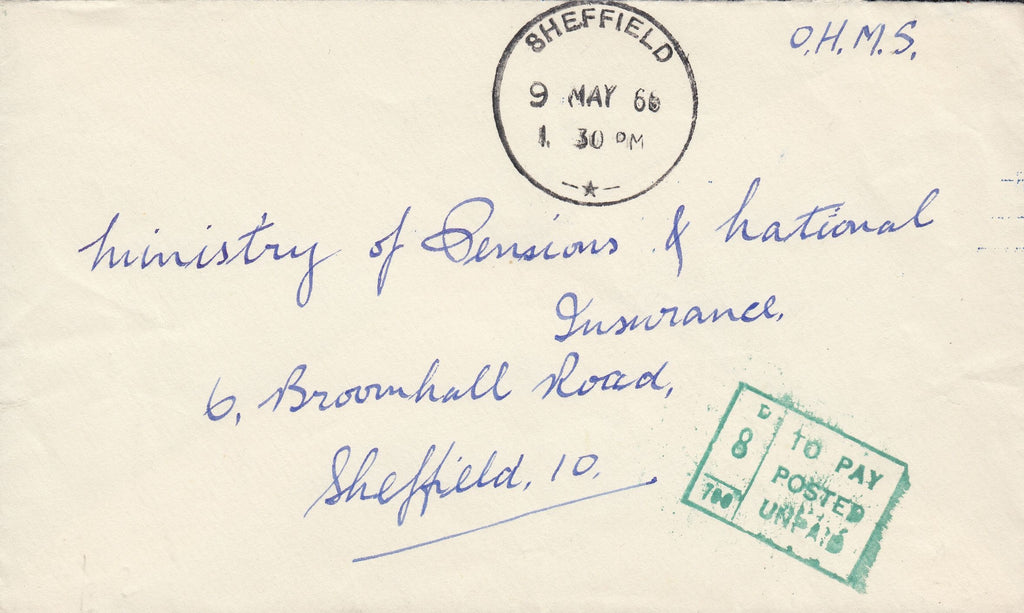 SHEFFIELD
9 MAY 66
1. 30 PM
O.H.M.S.
Ministry of Pensions & National
Insurance,
6, Broomhall Road,
Sheffield, 10.
D
8
TO PAY
POSTED
UNPAID